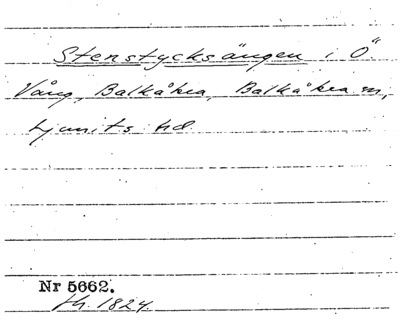 Stenstycksängen i Ö.
Vång, Balkåkra, Balkåkra sn,
Ljunits hd.
Nr 5662.
fh. 1824.